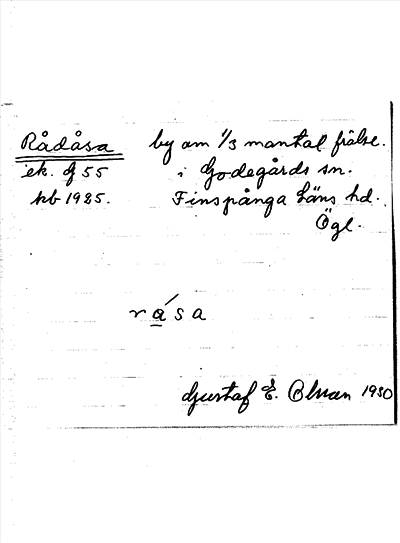 Rådåsa by om 1/3 mantal frälse.
ek. df 55 i Godegårds sn.
kb 1925. Finspånga Läns hd.
Ögl.
råsa
Gustaf E. Olsson 1930